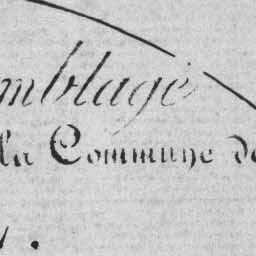 mblage
la Commune de